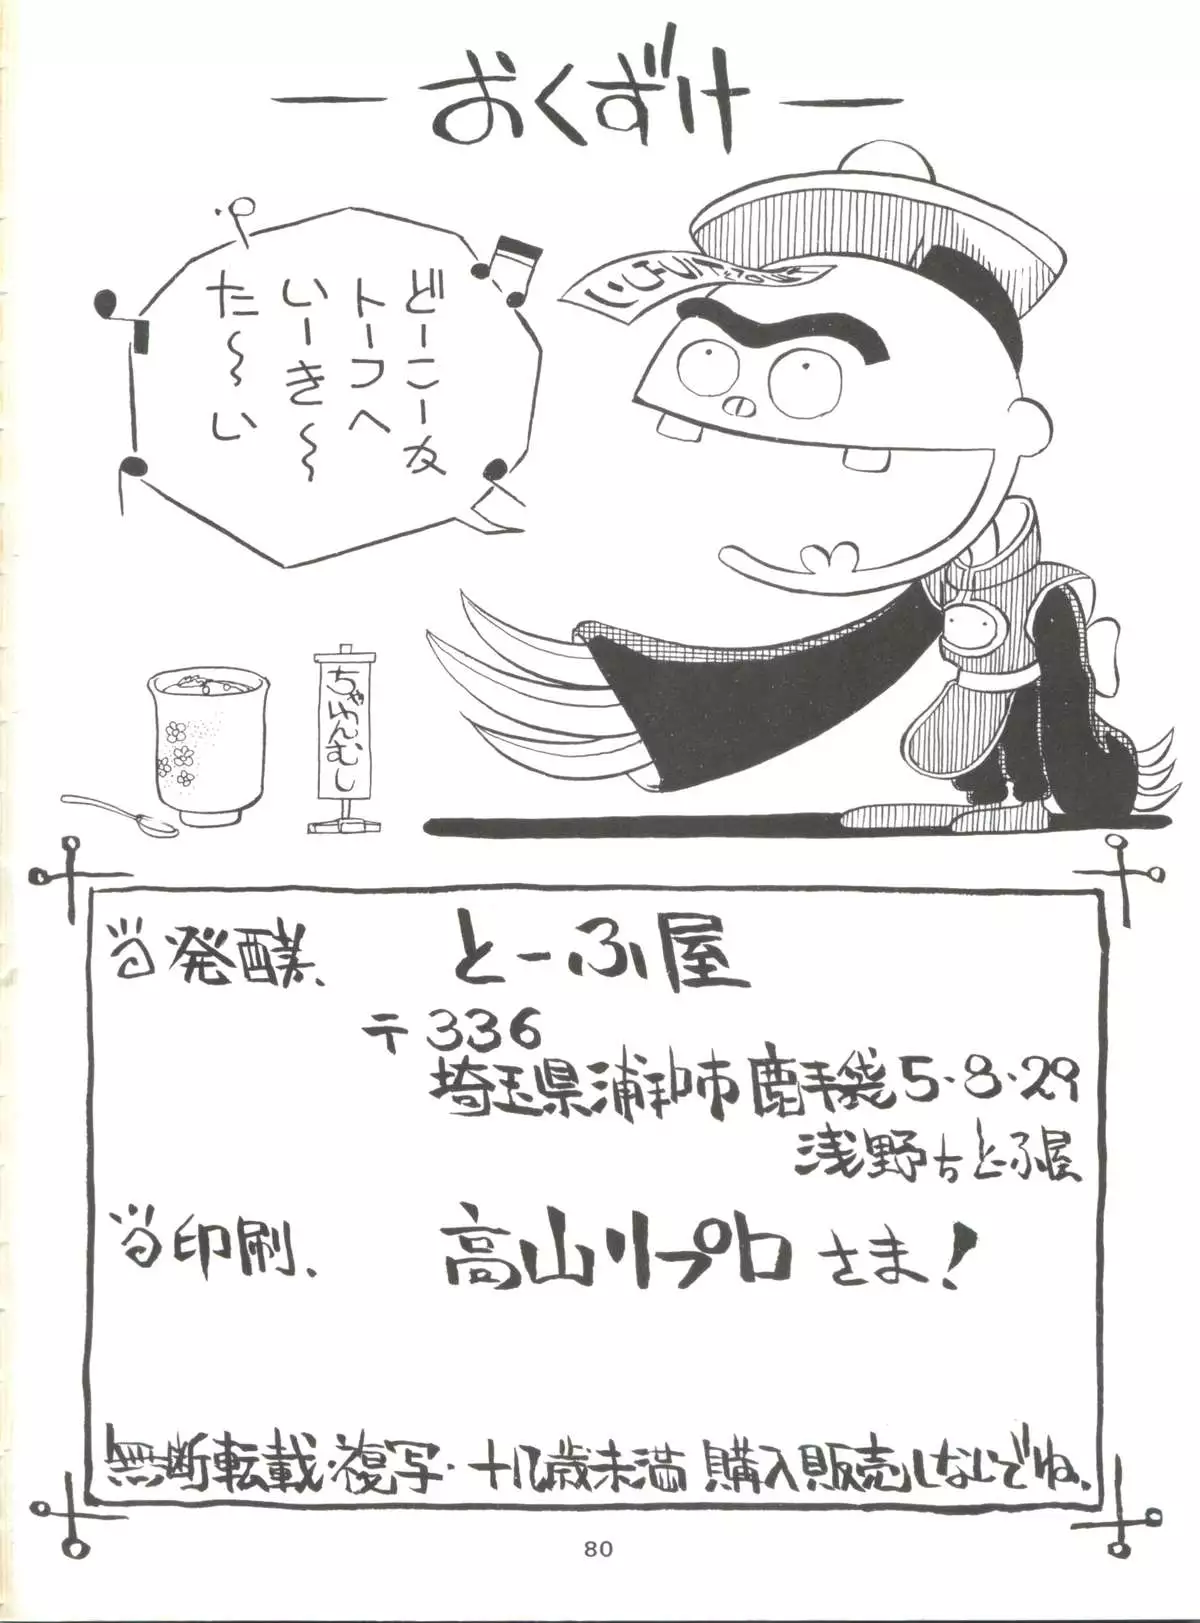 おくずけ
どーこー友
トーフへ
いーき〜
た〜い
ちゃわんむし
当発酵、 とーふ屋
〒336
埼玉県浦和市鹿手袋5・8・29
浅野方とーふ屋
当印刷、 高山リプロさま!
無断転載・複写・十八歳未満購入販売しないでね、
80